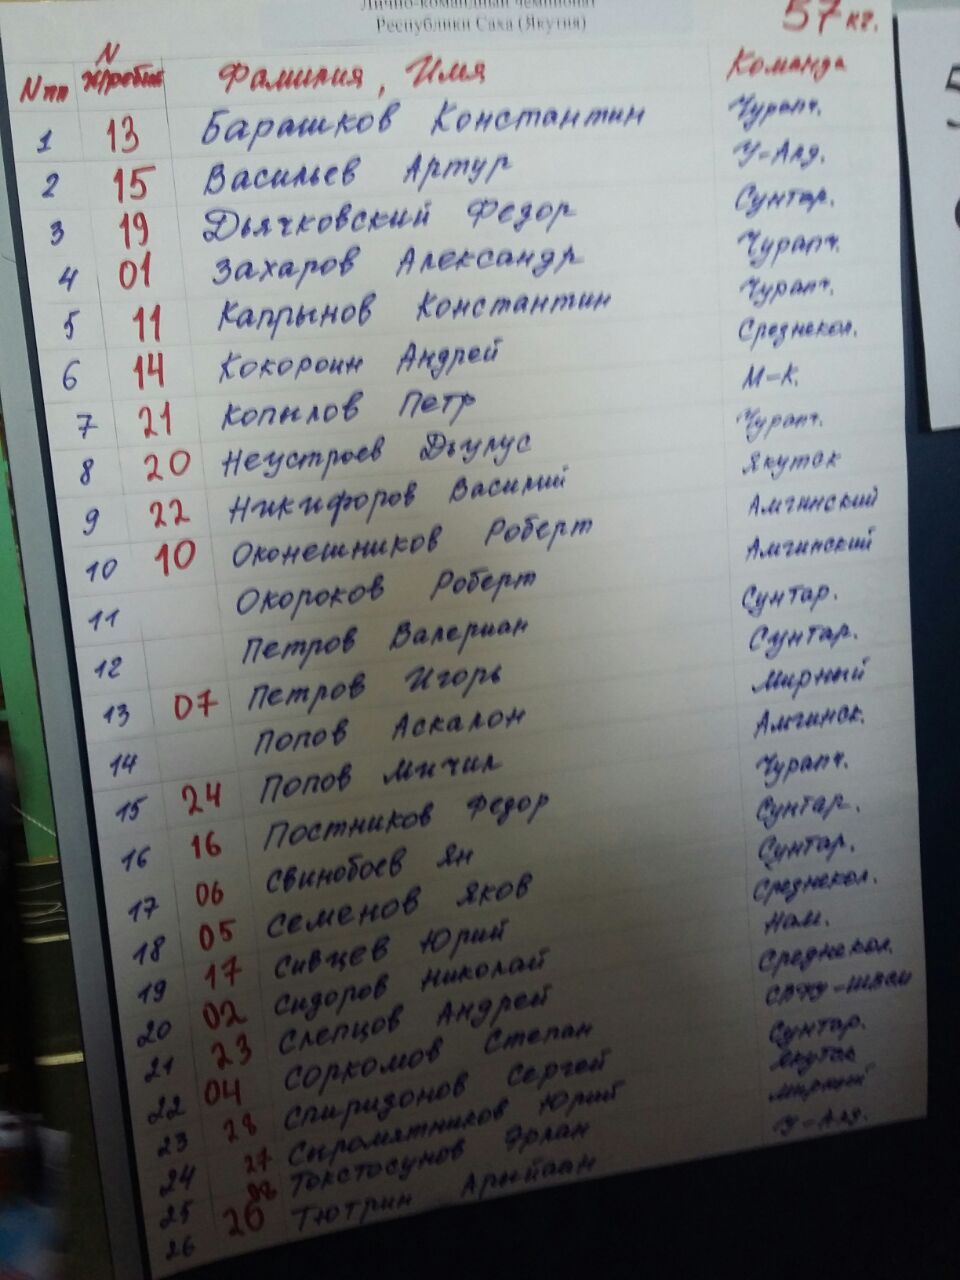 Лично-командный чемпионат
Республики Саха (Якутия)
57 кг.
N пп N жребия Фамилия, Имя Команда
1 13 Барашков Константин Чурапч.
2 15 Васильев Артур У-Алд.
3 19 Дьячковский Федор Сунтар.
4 01 Захаров Александр Чурапч.
5 11 Капрынов Константин Чурапч.
6 14 Кокорин Андрей Среднекол.
7 21 Копылов Петр М-К.
8 20 Неустроев Дьулус Чурапч.
9 22 Никифоров Василий Якутск
10 10 Оконешников Роберт Амгинский
11 Окороков Роберт Амгинский
12 Петров Валериан Сунтар.
13 07 Петров Игорь Сунтар.
14 Попов Аскалон Мирный
15 24 Попов Мичил Амгинск.
16 16 Постников Федор Чурапч.
17 06 Свинобоев Ян Сунтар.
18 05 Семенов Яков Сунтар.
19 17 Сивцев Юрий Среднекол.
20 02 Сидоров Николай Нам.
21 23 Слепцов Андрей Среднекол.
22 04 Соркомов Степан
23 28 Спиридонов Сергей Сунтар.
24 27 Сыромятников Юрий Якутск
25 Токтосунов Эрлан Мирный
26 26 Тютрин Арыйаан У-Алд.